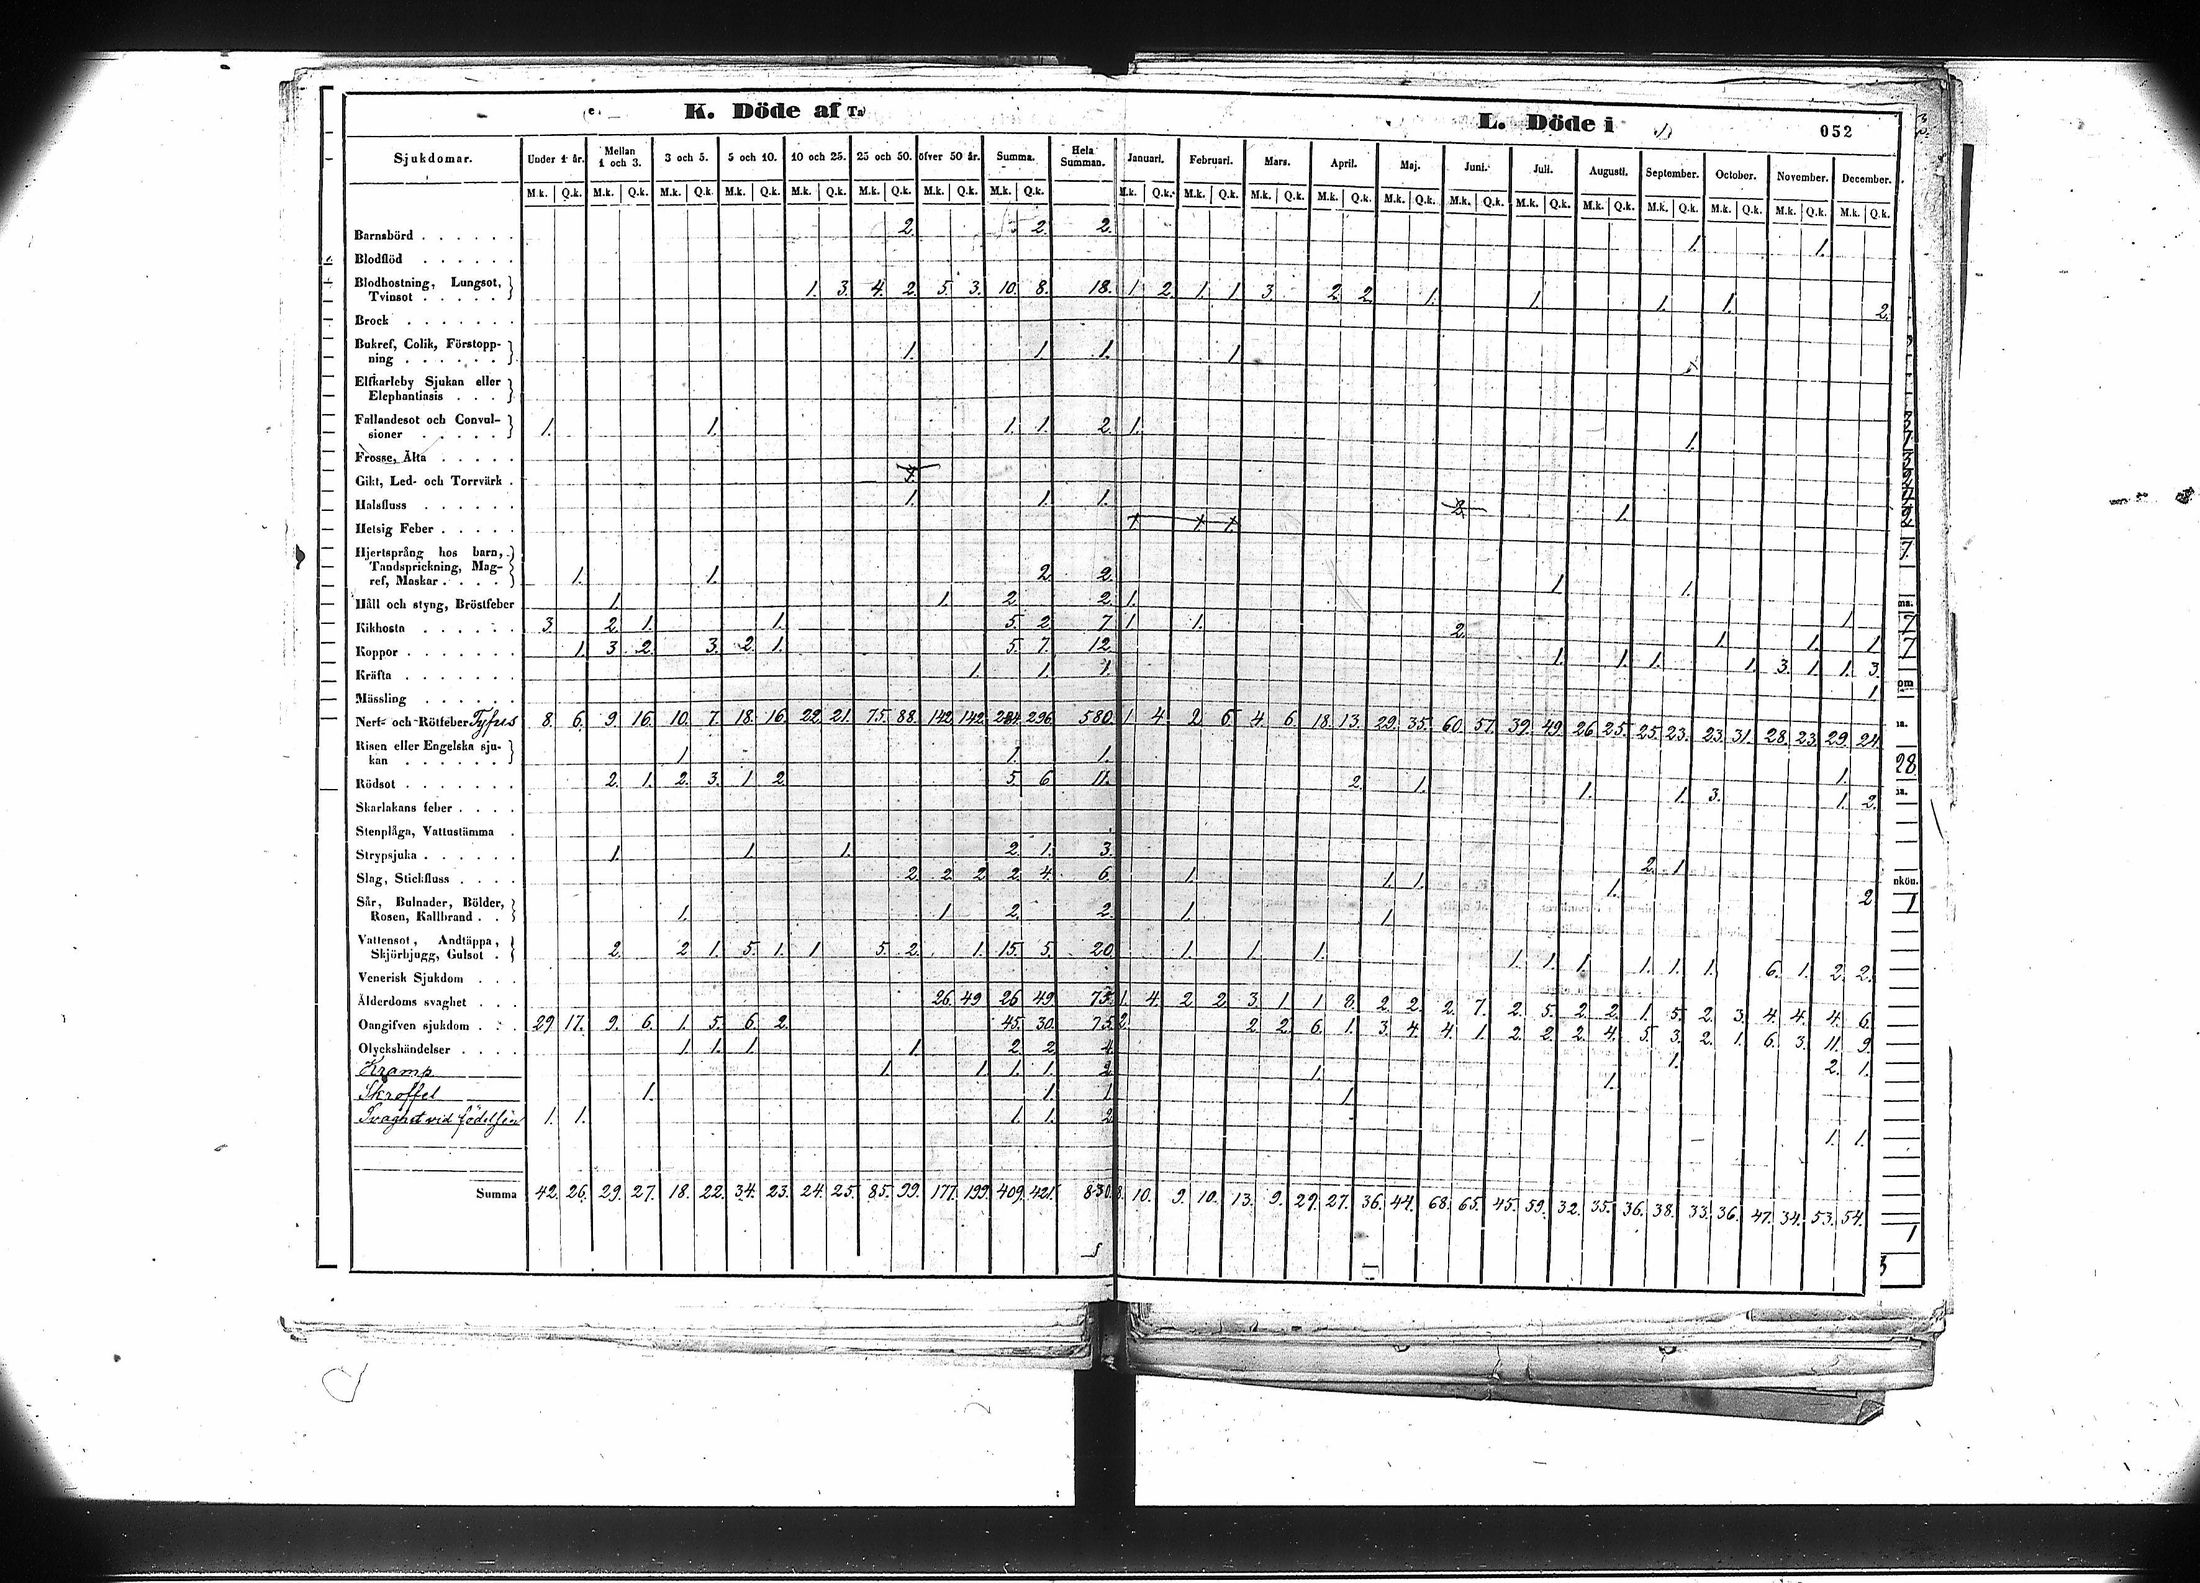 K. Döde af
L. Döde i
052
Sjukdomar. Under 1 år. Mellan 1 och 3. 3 och 5. 5 och 10. 10 och 25. 25 och 50. öfver 50 år. Summa. Hela Summan. Januari. Februari. Mars. April. Maj. Juni. Juli. Augusti. September. October. November. December.
M.k. Q.k. M.k. Q.k. M.k. Q.k. M.k. Q.k. M.k. Q.k. M.k. Q.k. M.k. Q.k. M.k. Q.k. M.k. Q.k. M.k. Q.k. M.k. Q.k. M.k. Q.k. M.k. Q.k. M.k. Q.k. M.k. Q.k. M.k. Q.k. M.k. Q.k. M.k. Q.k. M.k. Q.k. M.k. Q.k.
Barnsbörd . . . . . . 2. 2. 2. 1. 1.
Blodflöd . . . . . .
Blodhostning, Lungsot,
Tvinsot . . . . . 1. 3. 4. 2. 5. 3. 10. 8. 18. 1. 2. 1. 1. 3. 2. 2. 1. 1. 1. 1. 2.
Brock . . . . . . .
Bukref, Colik, Förstopp-
ning . . . . . . 1. 1. 1. 1.
Elfkarleby Sjukan eller
Elephantiasis . . .
Fallandesot och Convul-
sioner . . . . . 1. 1. 1. 1. 2. 1. 1.
Frosse, Älta . . . . .
Gikt, Led- och Torrvärk .
Halsfluss . . . . . . 1. 1. 1. 1.
Hetsig Feber . . . . .
Hjertsprång hos barn,
Tandsprickning, Mag-
ref, Maskar . . . . 1. 1. 2. 2. 1. 1.
Håll och styng, Bröstfeber 1. 1. 2. 2. 1. 1.
Kikhosta . . . . . . 3. 2. 1. 1. 5. 2. 7. 1. 1. 2. 1. 1. 1.
Koppor . . . . . . . 1. 3. 2. 3. 2. 1. 5. 7. 12. 1. 1. 1. 1. 3. 1. 1. 3.
Kräfta . . . . . . . 1. 1. 1. 1.
Mässling . . . . . .
Nerf- och Rötfeber Tyfus 8. 6. 9. 16. 10. 7. 18. 16. 22. 21. 75. 88. 142. 142. 284. 296. 580. 1. 4. 2. 6. 4. 6. 18. 13. 29. 35. 60. 57. 39. 49. 26. 25. 25. 23. 23. 31. 28. 23. 29. 24.
Risen eller Engelska sju-
kan . . . . . . 1. 1. 1. 1.
Rödsot . . . . . . . 2. 1. 2. 3. 1. 2. 5. 6. 11. 2. 1. 1. 1. 3. 1. 2.
Skarlakans feber . . . .
Stenplåga, Vattustämma .
Strypsjuka . . . . . . 1. 1. 1. 2. 1. 3. 2. 1.
Slag, Stickfluss . . . . 2. 2. 2. 2. 4. 6. 1. 1. 1. 1. 2.
Sår, Bulnader, Bölder,
Rosen, Kallbrand . . 1. 1. 2. 2. 1. 1.
Vattensot, Andtäppa,
Skjörbjugg, Gulsot . 2. 2. 1. 5. 1. 1. 5. 2. 1. 15. 5. 20. 1. 1. 1. 1. 1. 1. 1. 1. 1. 6. 1. 2. 2.
Venerisk Sjukdom . . .
Ålderdoms svaghet . . . 26. 49. 26. 49. 75. 1. 4. 2. 2. 3. 1. 1. 8. 2. 2. 2. 7. 2. 5. 2. 2. 1. 5. 2. 3. 4. 4. 4. 6.
Oangifven sjukdom . . . 29. 17. 9. 6. 1. 5. 6. 2. 45. 30. 75. 2. 2. 2. 6. 1. 3. 4. 4. 1. 2. 2. 2. 4. 5. 3. 2. 1. 6. 3. 11. 9.
Olyckshändelser . . . . 1. 1. 1. 1. 2. 2. 4. 1. 2. 1.
Kramp 1. 1. 1. 1. 2. 1. 1.
Skroffel 1. 1. 1. 1.
Svaghet vid födelsen 1. 1. 1. 1. 2. 1. 1.
Summa 42. 26. 29. 27. 18. 22. 34. 23. 24. 25. 85. 99. 177. 199. 409. 421. 830. 8. 10. 9. 10. 13. 9. 29. 27. 36. 44. 68. 65. 45. 59. 32. 35. 36. 38. 33. 36. 47. 34. 53. 54.